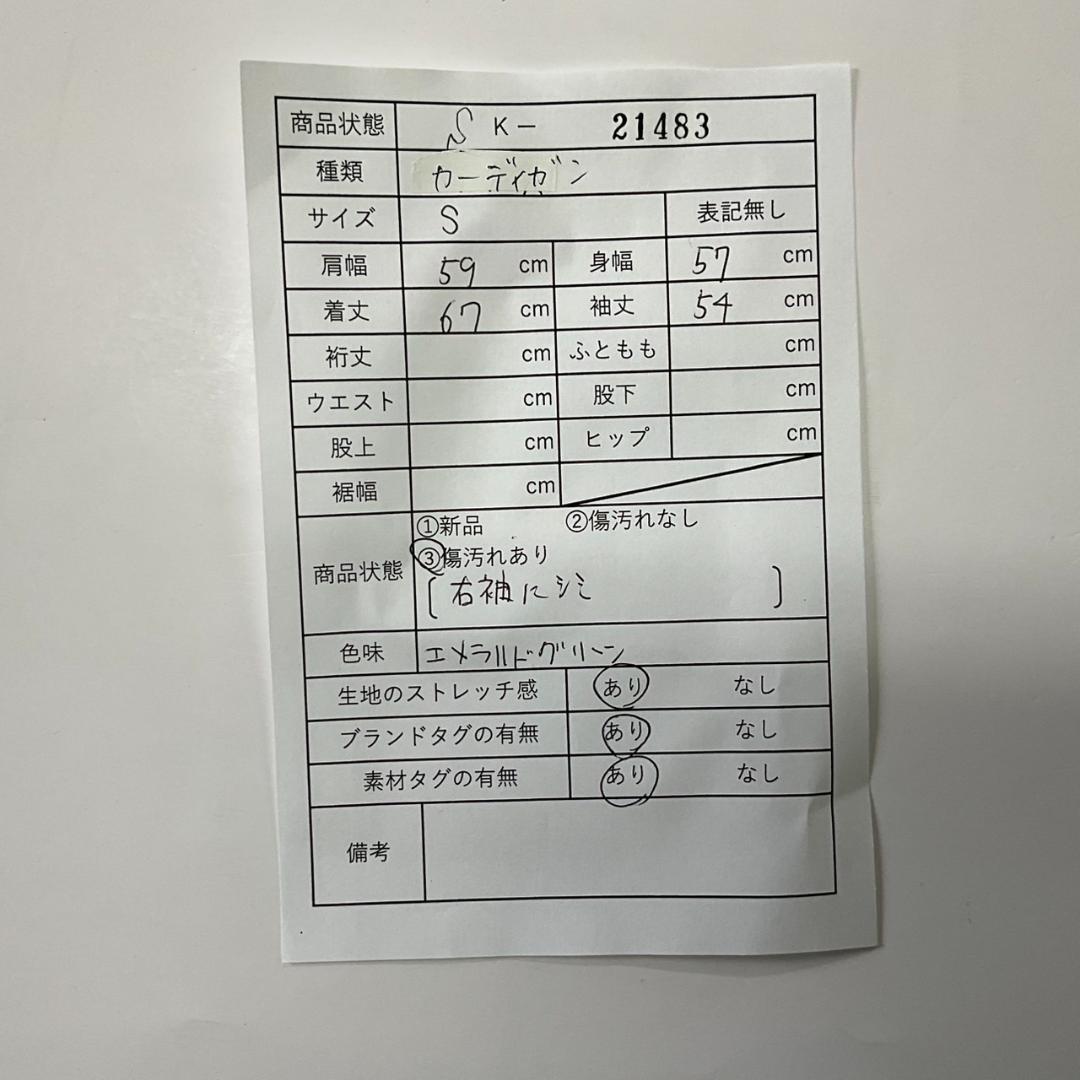 商品状態 S K－ 21483
種類 カーディガン
サイズ S 表記無し
肩幅 59 cm 身幅 57 cm
着丈 67 cm 袖丈 54 cm
裄丈 cm ふともも cm
ウエスト cm 股下 cm
股上 cm ヒップ cm
裾幅 cm
商品状態 ①新品 ②傷汚れなし
③傷汚れあり
[右袖にシミ]
色味 エメラルドグリーン
生地のストレッチ感 あり なし
ブランドタグの有無 あり なし
素材タグの有無 あり なし
備考